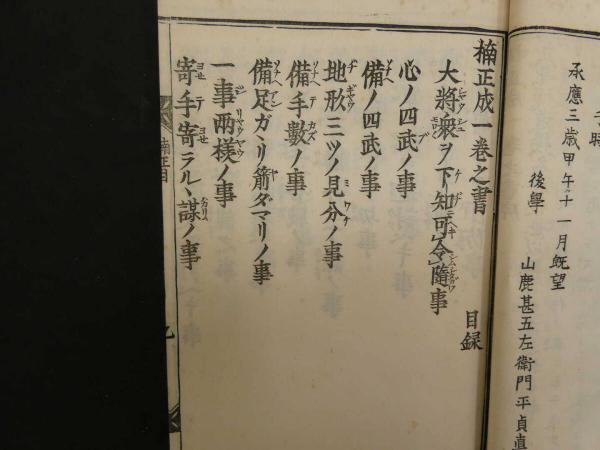 承應三歳甲午十一月既望
後學
山鹿甚五左衛門平貞直
楠正成一巻之書
目録
大將衆ヲ下知可令隨事
心ノ四武ノ事
備ノ四武ノ事
地形三ツノ見分ノ事
備手數ノ事
備足ガヽリ箭ダマリノ事
一事兩樣ノ事
寄手寄ラルヽ謀ノ事